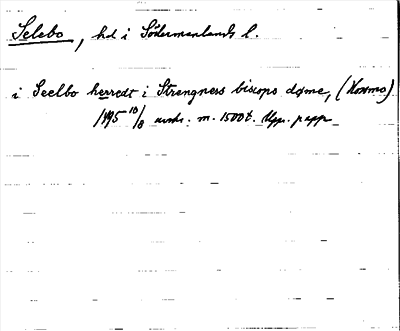 Selebo, hd i Södermanlands l.
i Seelbo herredt i Strengness biscops døme, (Kosmo)
1495 10/8 avskr. m. 1500 t. Upp. papp